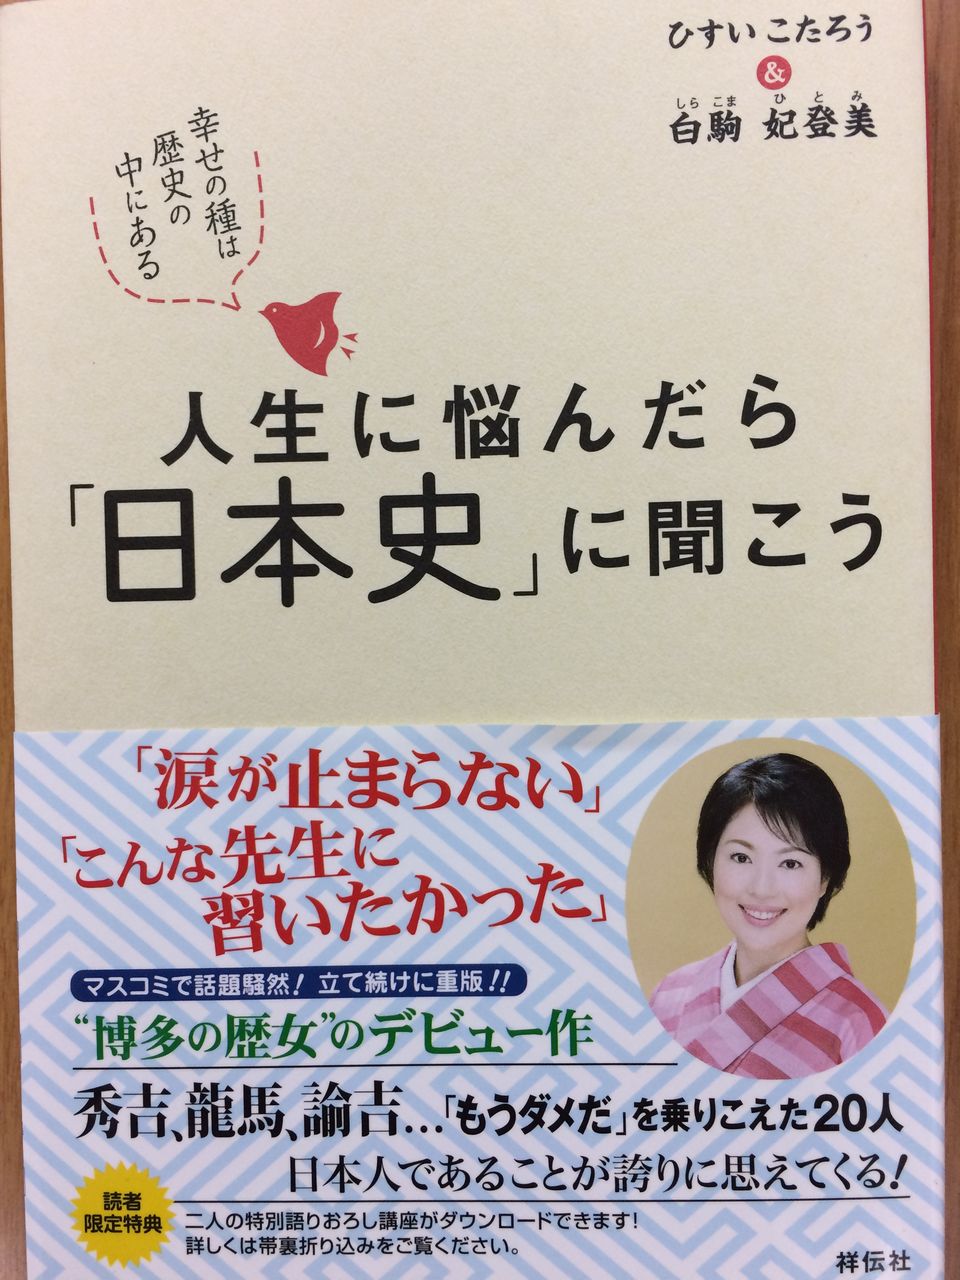 ひすい こたろう
&
しら こま ひ と み
白駒 妃登美
幸せの種は
歴史の
中にある
人生に悩んだら
「日本史」に聞こう
「涙が止まらない」
「こんな先生に
習いたかった」
マスコミで話題騒然! 立て続けに重版!!
“博多の歴女”のデビュー作
秀吉、龍馬、諭吉…「もうダメだ」を乗りこえた20人
日本人であることが誇りに思えてくる!
読者
限定特典
二人の特別語りおろし講座がダウンロードできます!
詳しくは帯裏折り込みをご覧ください。
祥伝社